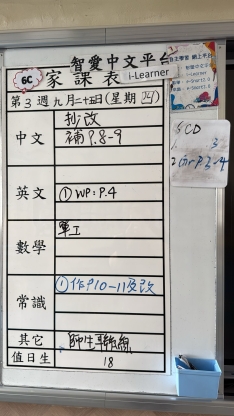 智愛中文平台
6C 家課表 i-Learner
第3週九月二十五日(星期四)
中文 抄改
補P.8-9
英文 ①WP:P.4
數學 單工
常識 ①作P.10-11及改
其它 師生聯絡
值日生 18